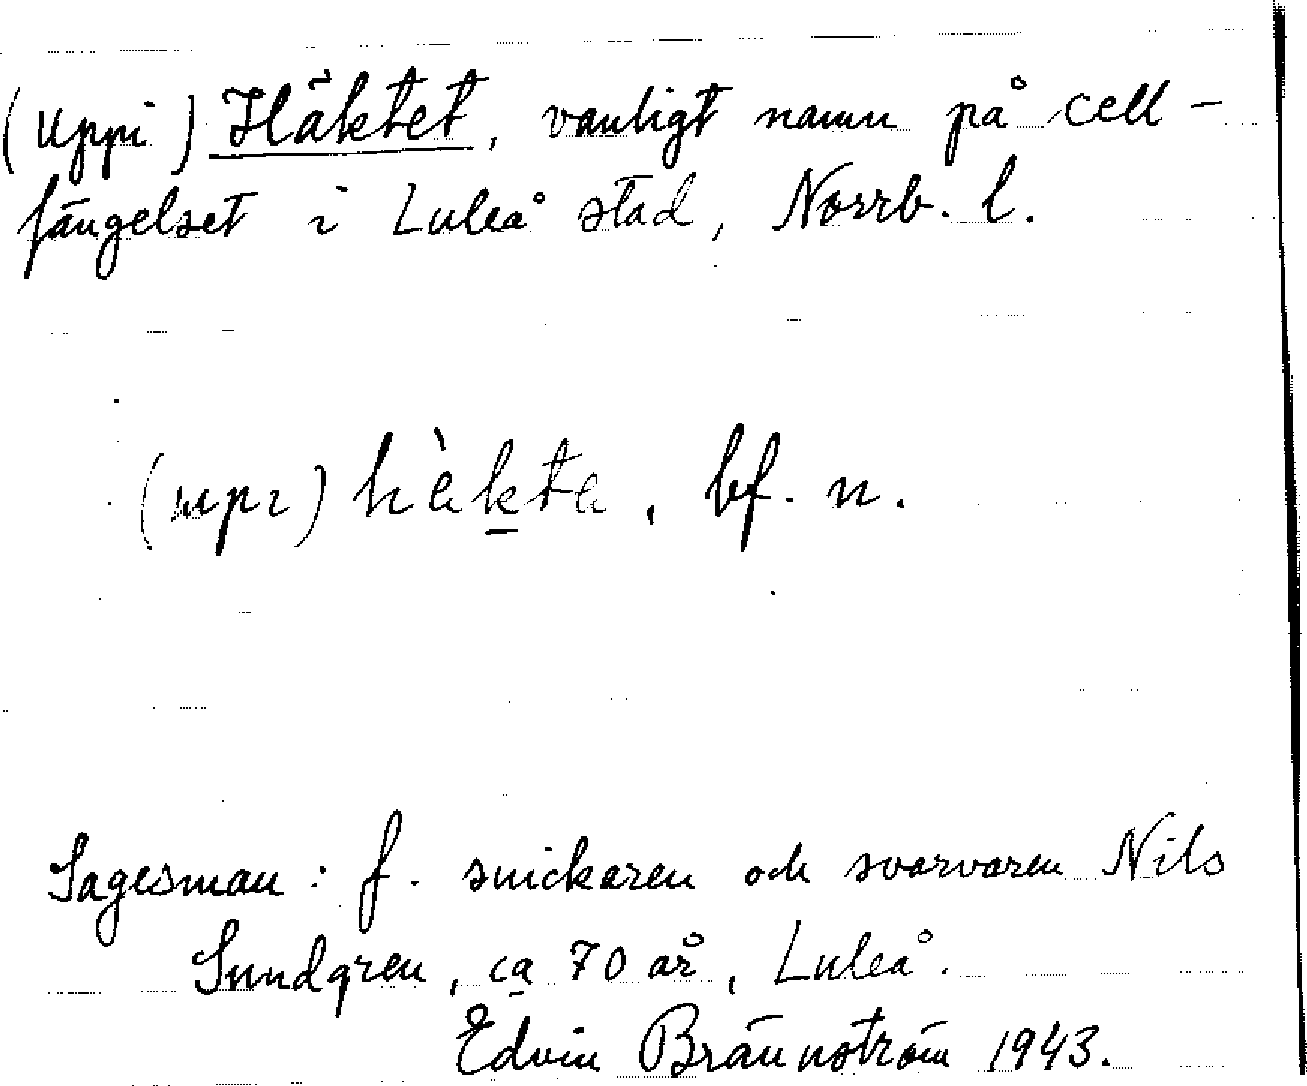 (Uppi) Häktet, vanligt namn på cell-
fängelset i Luleå stad, Norrb. l.
(upı) hàkta, bf. n.
Sagesman: f. snickaren och svarvaren Nils
Sundgren, ca 70 år, Luleå.
Edvin Brännström 1943.